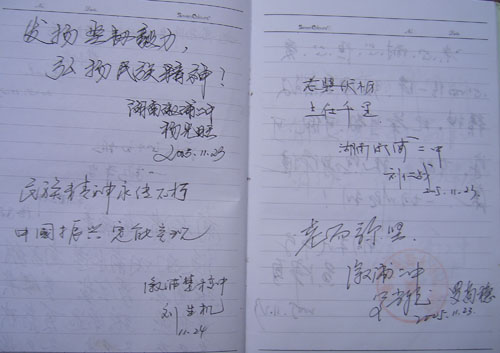 发扬坚韧毅力，
弘扬民族精神！
湖南溆浦二中
2005.11.23
民族精神永远不朽
中国振兴定能实现
溆浦楚才中
刘生机
11.24
老骥伏枥
志在千里
湖南溆浦一中
2005.11.23
老而弥坚
溆浦二中
2005.11.23.